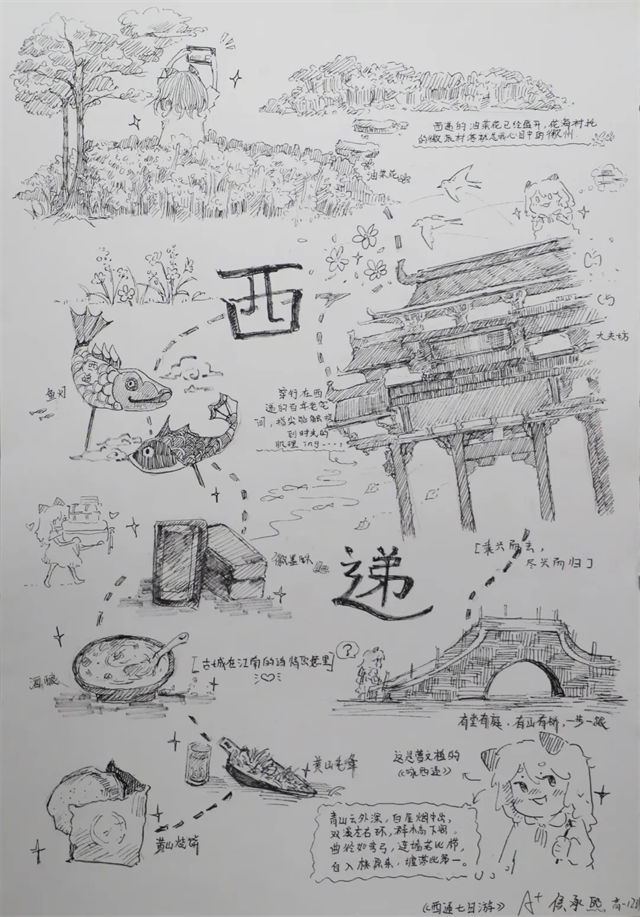 西递的油菜花已经盛开,花海衬托
的徽派村落就是我心目中的徽州.
油菜花
大夫坊
西
鱼灯
穿行在西
递的百年老宅
间,指尖临触摸
到时光的
肌理 ing......
徽墨酥
递
[乘兴而去,
尽兴而归]
[古城在江南的诗情及巷里]
酒酿
?
有堂有庭.有山有桥,一步一景
黄山毛峰
黄山烧饼
这是曹文植的
《咏西递》
青山云外深,白屋烟中出,
双溪左右环,群木高下密.
曲径如弯弓,连墙若比栉.
自入桃源来,墟落此第一。
《西递七日游》 A+ 高一12